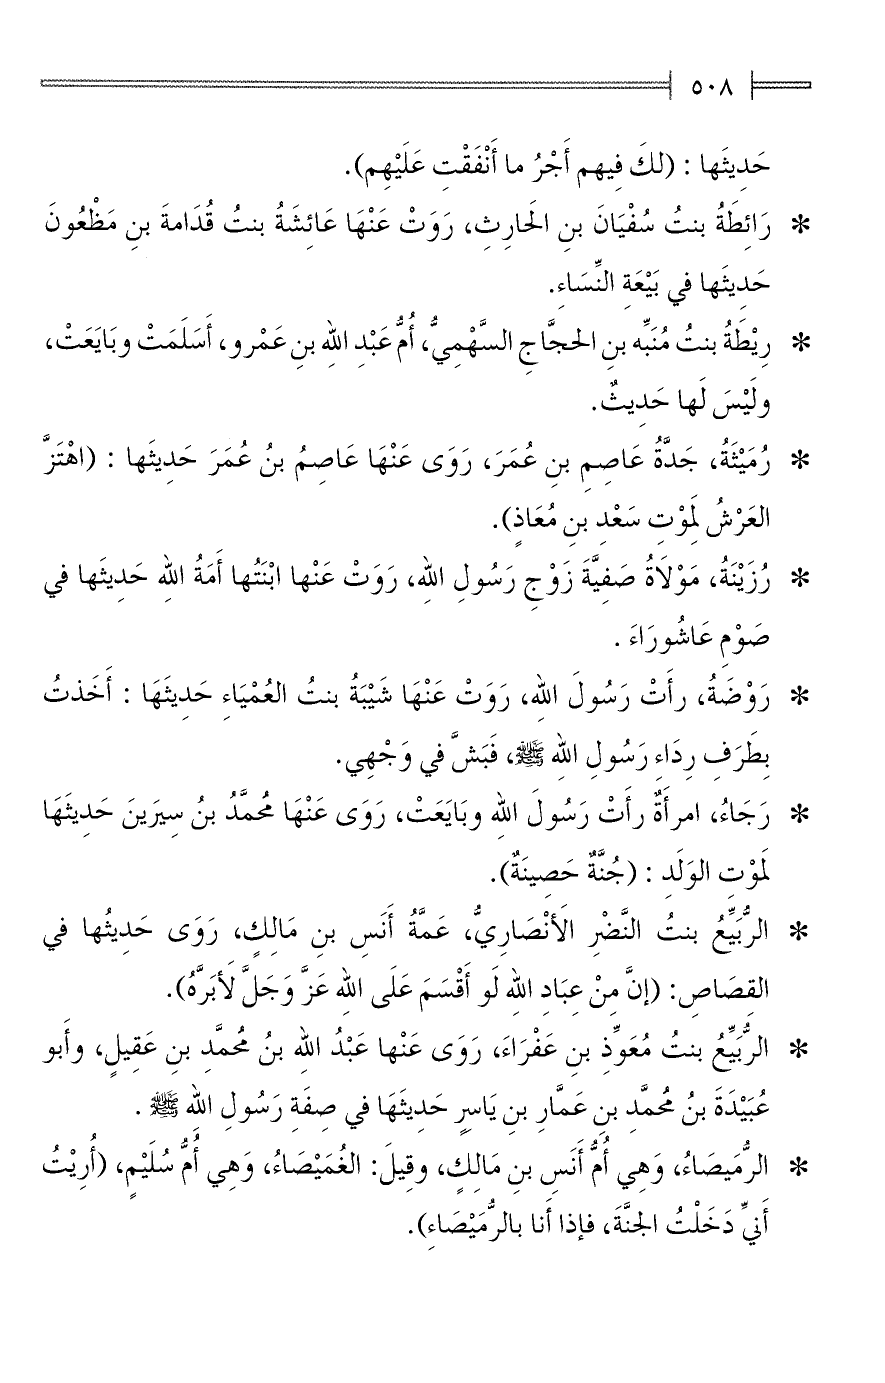 ٥٠٨
حَدِيثَها : (لكَ فِيهم أَجْرُ ما أَنْفَقْتِ عَلَيْهِم).
* رَائِطَةُ بنتُ سُفْيَانَ بنِ الحَارِثِ، رَوَتْ عَنْهَا عَائِشَةُ بنتُ قُدَامةَ بنِ مَظْعُونَ
حَدِيثَها في بَيْعَةِ النِّسَاءِ.
* رِيْطَةُ بنتُ مُنَبِّه بنِ الحجَّاجِ السَّهْمِيُّ، أُمُّ عَبْدِ اللهِ بنِ عَمْرو، أَسلَمَتْ وبَايَعَتْ،
ولَيْسَ لَها حَدِيثٌ.
* رُمَيْثَةُ، جَدَّةُ عَاصِمِ بنِ عُمَرَ، رَوَى عَنْهَا عَاصِمُ بنُ عُمَرَ حَدِيثَها : (اهْتَزَّ
العَرْشُ لِمَوْتِ سَعْدِ بنِ مُعَاذٍ).
* رُزَيْنَةُ، مَوْلَاةُ صَفِيَّةَ زَوْجِ رَسُولِ اللهِ، رَوَتْ عَنْها ابْنَتُها أَمَةُ اللهِ حَدِيثَها في
صَوْمِ عَاشُورَاءَ .
* رَوْضَةُ، رأَتْ رَسُولَ اللهِ، رَوَتْ عَنْهَا شَيْبَةُ بنتُ العُمْيَاءِ حَدِيثَهَا : أَخَذتُ
بِطَرَفِ رِدَاءِ رَسُولِ اللهِ ﷺ، فَبَشَّ في وَجْهِي.
* رَجَاءُ، امرأَةٌ رأَتْ رَسُولَ اللهِ وبَايَعَتْ، رَوَى عَنْهَا مُحمَّدُ بنُ سِيَرينَ حَدِيثَهَا
لِمَوْتِ الوَلَدِ : (جُنَّةٌ حَصِينَةٌ).
* الرُّبَيِّعُ بنتُ النَّضْرِ الأَنْصَارِيُّ، عَمَّةُ أَنَسِ بنِ مَالِكٍ، رَوَى حَدِيثُها في
القِصَاصِ: (إنَّ مِنْ عِبَادِ اللهِ لَو أَقْسَمَ عَلَى اللهِ عَزَّ وَجَلَّ لأَبَرَّهُ).
* الرُّبَيِّعُ بنتُ مُعَوِّذِ بنِ عَفْرَاءَ، رَوَى عَنْها عَبْدُ اللهِ بنُ مُحمَّدِ بنِ عَقِيلٍ، وأَبو
عُبَيْدَةَ بنُ مُحمَّدِ بنِ عَمَّارِ بنِ يَاسِرٍ حَدِيثَهَا في صِفَةِ رَسُولِ اللهِ ﷺ .
* الرُّمَيصَاءُ، وَهِي أُمُّ أَنَسِ بنِ مَالِكٍ، وقِيلَ: الغُمَيْصَاءُ، وَهِي أُمُّ سُلَيْمٍ، (أُرِيْتُ
أَنيِّ دَخَلْتُ الجنَّةَ، فإذا أَنا بالرُّمَيْصَاءِ).